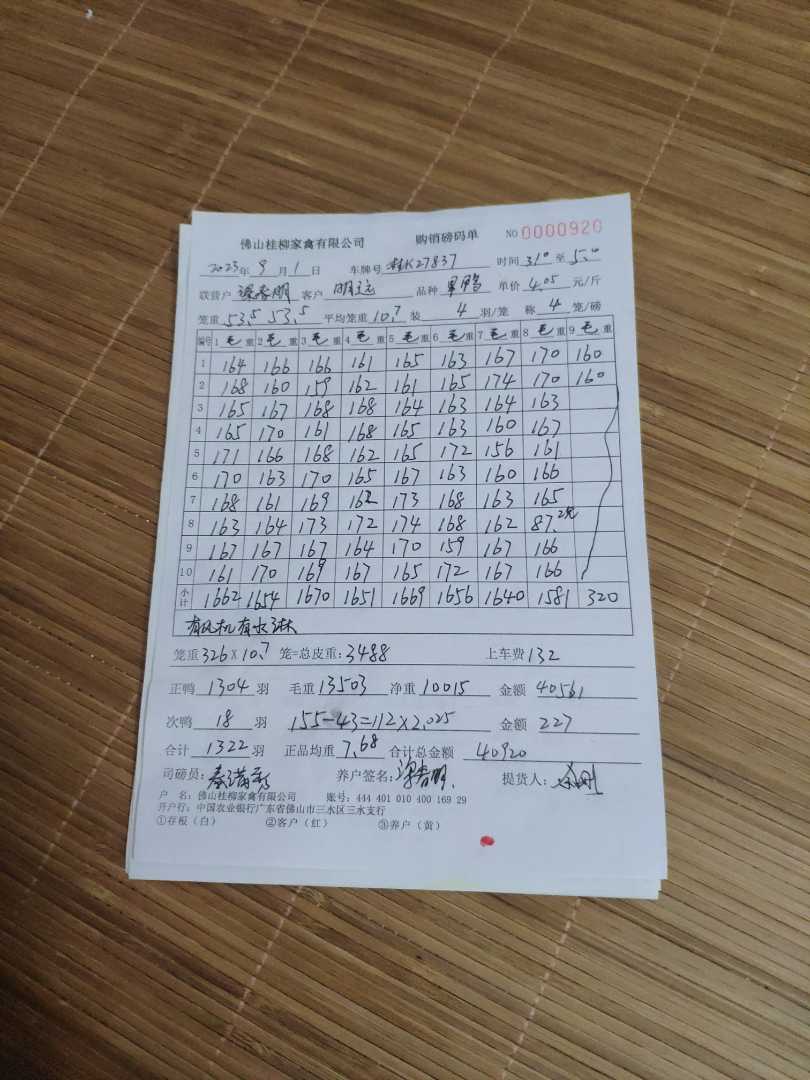 佛山桂柳家禽有限公司 购销磅码单 NO 0000920
2023年 9 月 1 日 车牌号 桂K27837 时间 31⁰ 至 5.⁰
联营户 客户 明远 品种 单价 4.05 元/斤
笼重 53.5 53.5 平均笼重 10.7 装 4 羽/笼 称 4 笼/磅
编号 1 毛 重 2 毛 重 3 毛 重 4 毛 重 5 毛 重 6 毛 重 7 毛 重 8 毛 重 9 毛 重
1 164 166 166 161 165 163 167 170 160
2 168 160 159 162 161 165 174 170 160
3 165 167 168 168 164 163 164 163
4 165 170 161 168 165 163 160 167
5 171 166 168 162 165 172 156 161
6 170 163 170 165 167 163 160 166
7 168 161 169 162 173 168 163 165
8 163 164 173 172 174 168 162 87.2笼
9 167 167 167 164 170 159 167 166
10 161 170 169 167 165 172 167 166
小计 1662 1654 1670 1651 1669 1656 1640 1581 320
有风机有水淋
笼重 326 X 10.7 笼=总皮重: 3488 上车费 132
正鸭 1304 羽 毛重 13503 净重 10015 金额 40561
次鸭 18 羽 155-43=112X2.025 金额 227
合计 1322 羽 正品均重 7.68 合计总金额 40920
司磅员: 养户签名: 提货人:
户 名: 佛山桂柳家禽有限公司 账号: 444 401 010 400 169 29
开户行: 中国农业银行广东省佛山市三水区三水支行
①存板(白) ②客户(红) ③养户(黄)